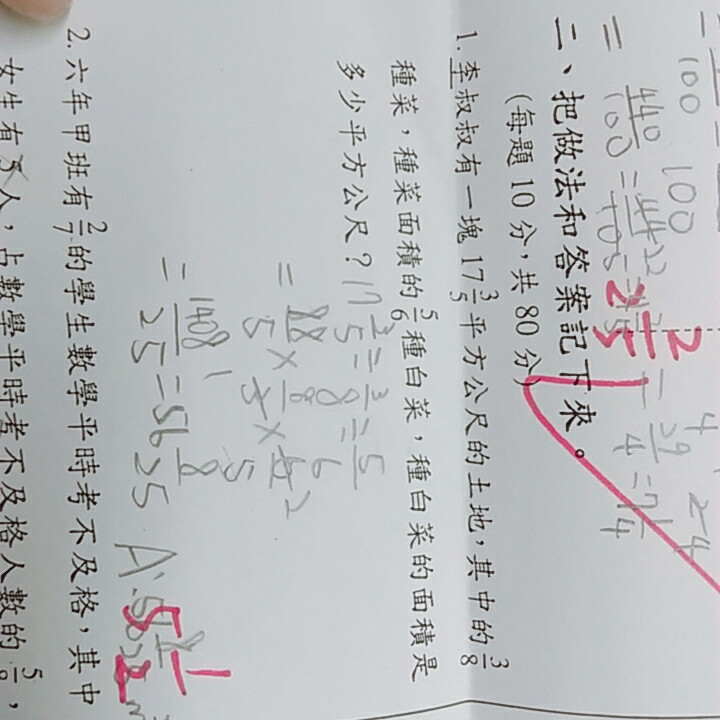 100 100
= 440/100 = 44
二、把做法和答案記下來。
(每題10分,共80分)
1. 李叔叔有一塊17 3/5平方公尺的土地,其中的3/8
種菜,種菜面積的5/6種白菜,種白菜的面積是
多少平方公尺?
17 3/5 ÷ 3/8 ÷ 5/6
= 88/5 × 8/3 × 6/5 2
= 1408/25 = 56 8/25
A:
5 1/2
2. 六年甲班有2/7的學生數學平時考不及格,其中
女生有 人,占數學平時考不及格人數的5/8,